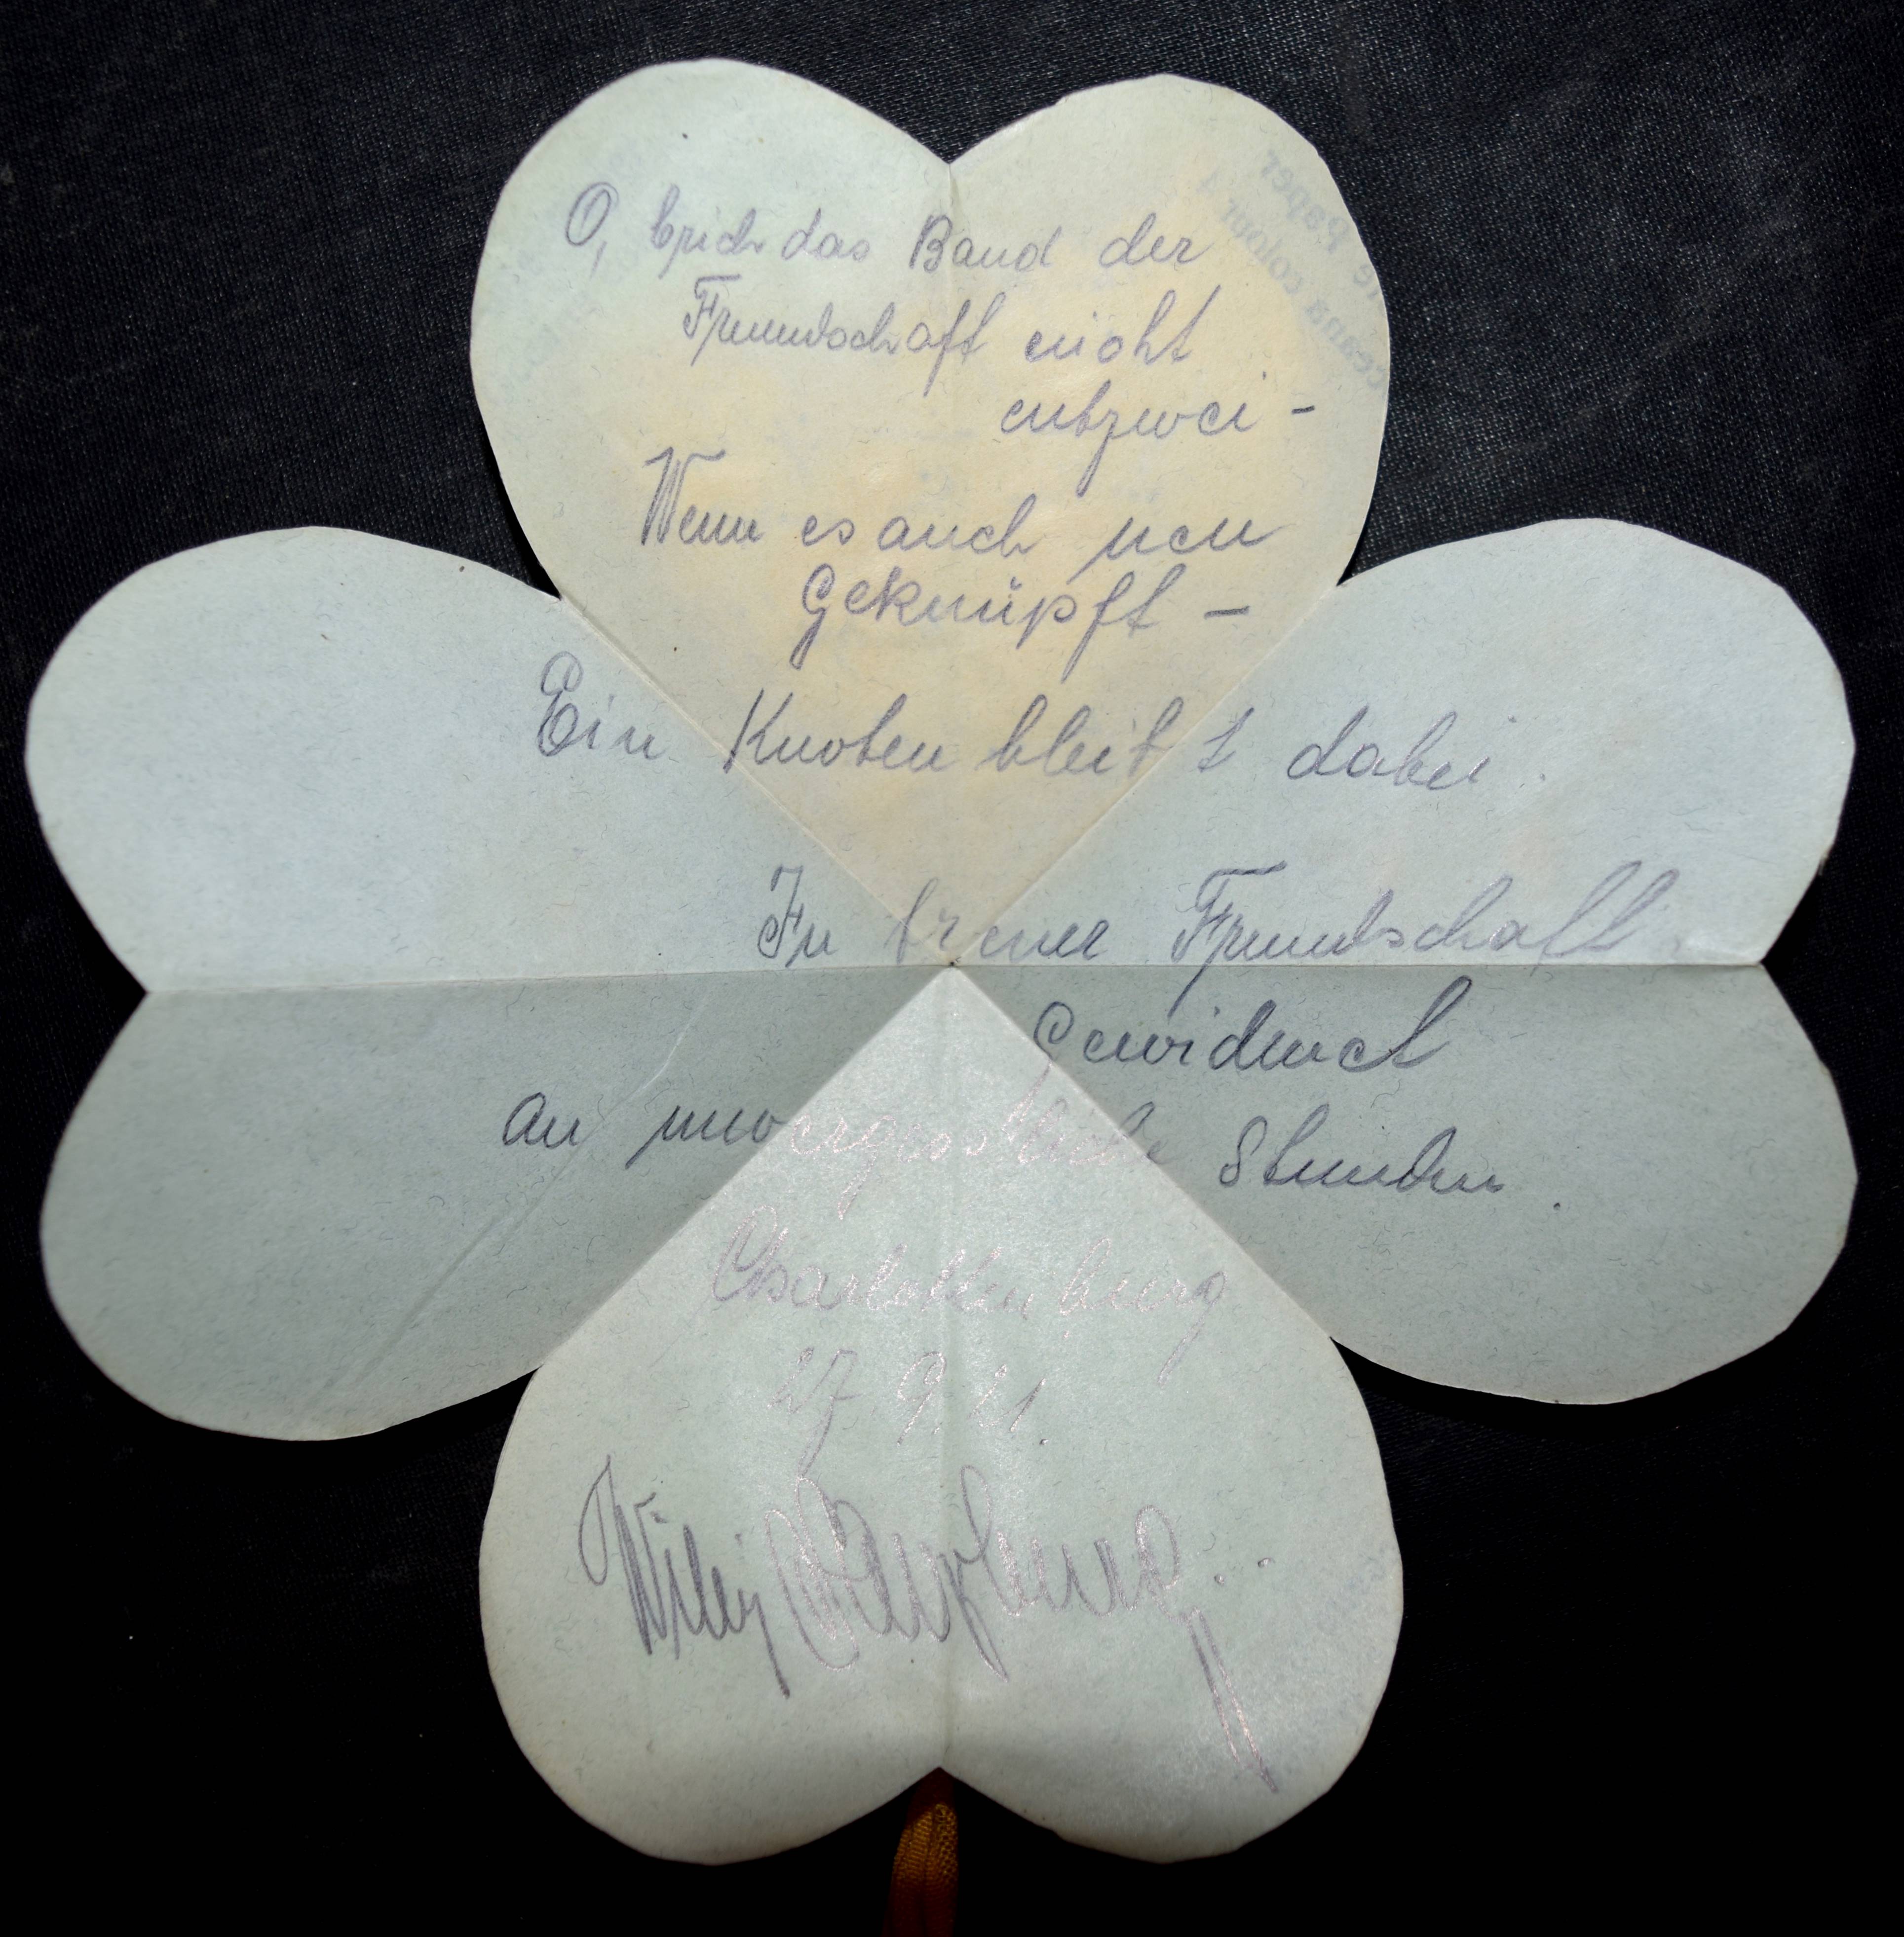 O, brich das Band der
Freundschaft nicht
entzwei -
Wenn es auch neu
Geknüpft -
Ein Knoten bleibt dabei.
In treuer Freundschaft
Gewidmet
an unvergessliche Stunden.
Charlottenburg
27. 9. 21.
Willy